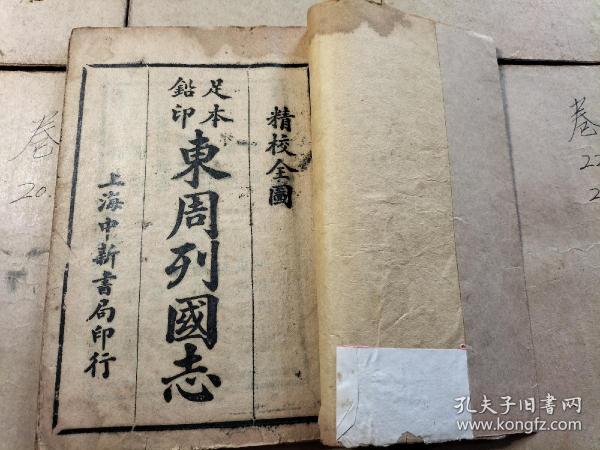 精校全圖
足本
鉛印
東周列國志
上海中新書局印行
卷
20.
卷
22
2
孔夫子旧書网
www.kongfz.com